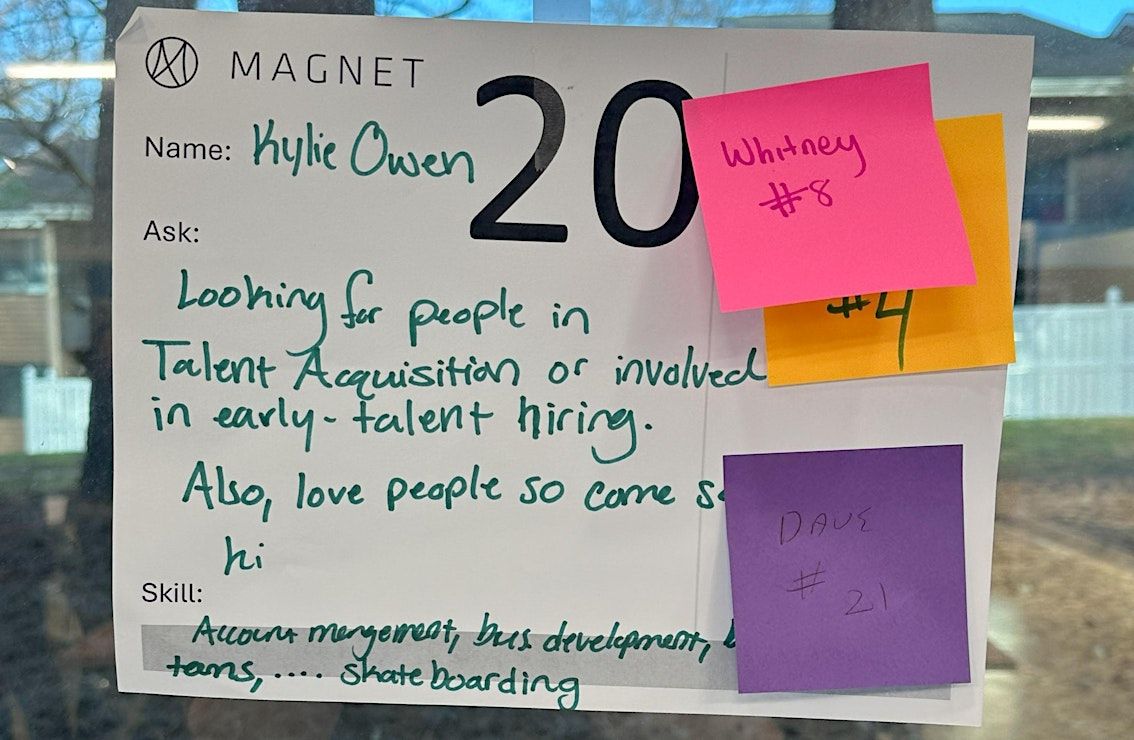 MAGNET
20
Name: Kylie Owen
Ask:
Looking for people in
Talent Acquisition or involved
in early-talent hiring.
Also, love people so come
hi
Skill:
Account mengement, bus development,
teams, .... skateboarding
Whitney
#8
#4
DAVE
# 21